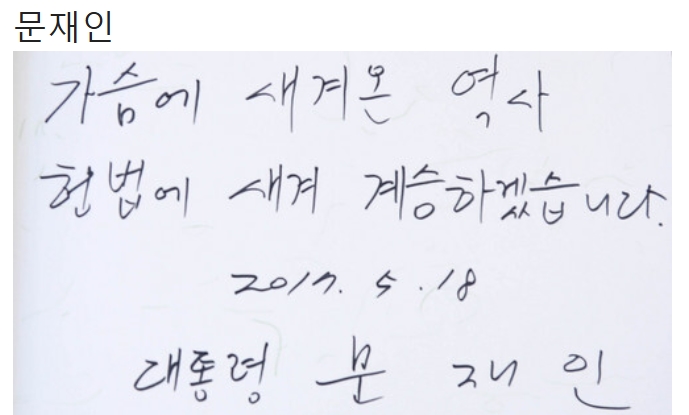 문재인
가슴에 새겨온 역사
헌법에 새겨 계승하겠습니다.
2017. 5. 18
대통령 문 재 인